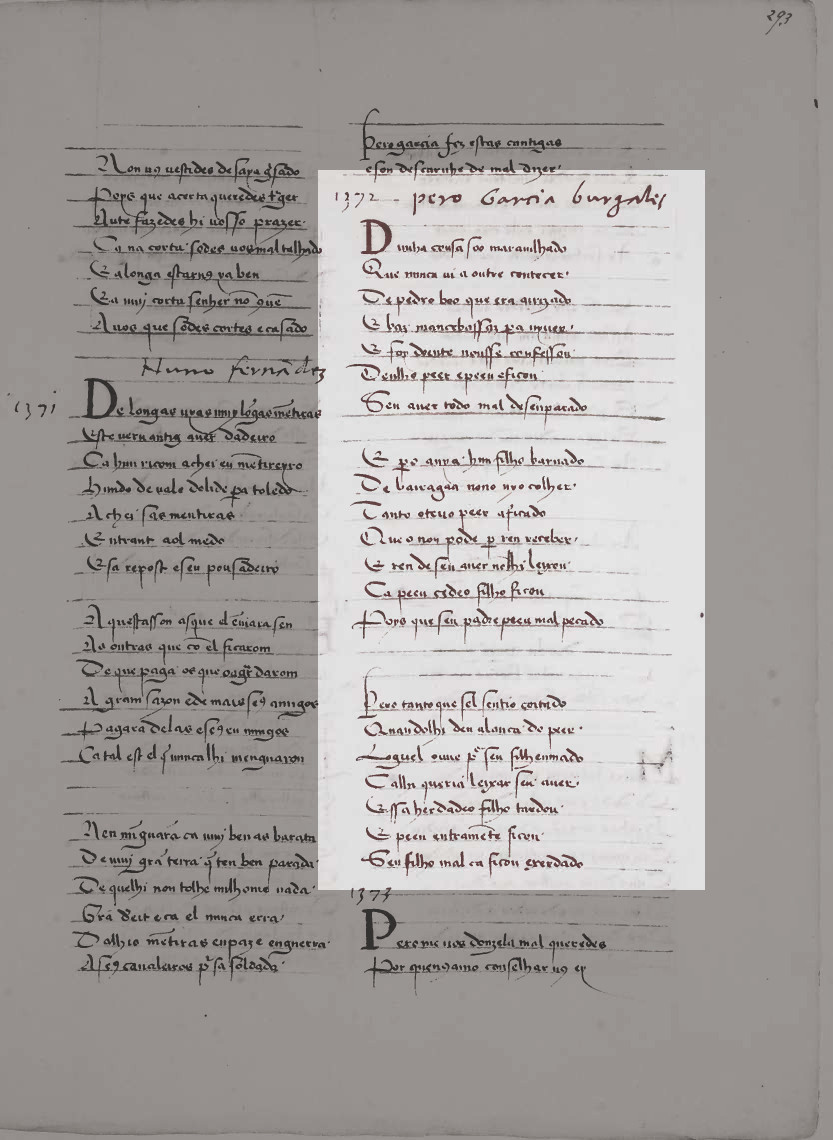 293
Non uꝯ uestides de saya g̃sado
Poys que acerta queredes t̃ger
Ante fazedes hi uosso prazer
Ca na corta sodes uos mal talhado
E a longa estarꝯ ya ben
E a muj corta senher nõ
A uos que sodes cortes e casado
Nuno fernãdez
1371
De longas uyas muy lõgas mẽtiras
Este veru antig dadeiro
Ca hun ricom achei eu mẽtireyro
Hindo de ualedolide pa toledo
Achei sas mentiras
Entrant a olmedo
E sa repost e seu pousadeiro
Aquestas son as que el ẽuiara sen
As outras que cõ el ficarom
De que paga os que darom
A gram sazon e de mays seꝯ amigos
Pagara delas e seꝯ eu mingos
Ca tal est el q̃ nunca lhi menguaron
Nen mĩguarã ca muj ben as barata
De muj grã terra q̃ ten ben parada
De quelhi non tolhe nulhome nada
Grã dereit e ca el nunca erra
Dalhis mẽtiras en paz e en guerra
A seꝯ caualeiros p̃ sa soldada
Pero garcia fez estas cantigas
e son descarnhe de mal dizer
1372 - pero Garcia burgales
Dunha cousa soo marauilhado
Que nunca ui a outre contecer
De pedro boo que era arrizado
E bar mancebo assaz pa uyuer
E foy doente nonsse confessou
Deulho peer e peeu e ficou
Seu auer todo mal desenparado
E po auya hun filho barnado
De bairagaa nono uyo colher
Tanto oteuo peer aficado
Que o non pode p ren receber
E ren de seu auer nõlhi leyxou
Ca peeu e filho ficou
Poys que seu padre peeu mal pecado
Pero tanto que sel sentio coitado
Quandolhi deu alança do peer
Loguel ouue p̃ seu filh enuiado
Calhi queria leixar seu auer
E ssa herdade o filho tardou
E peeu entramẽte ficou
Seu filho mal ca ficou exerdado
1373
Pero me uos donzela mal queredes
Por quenꝯ amo conselhar uꝯ ey